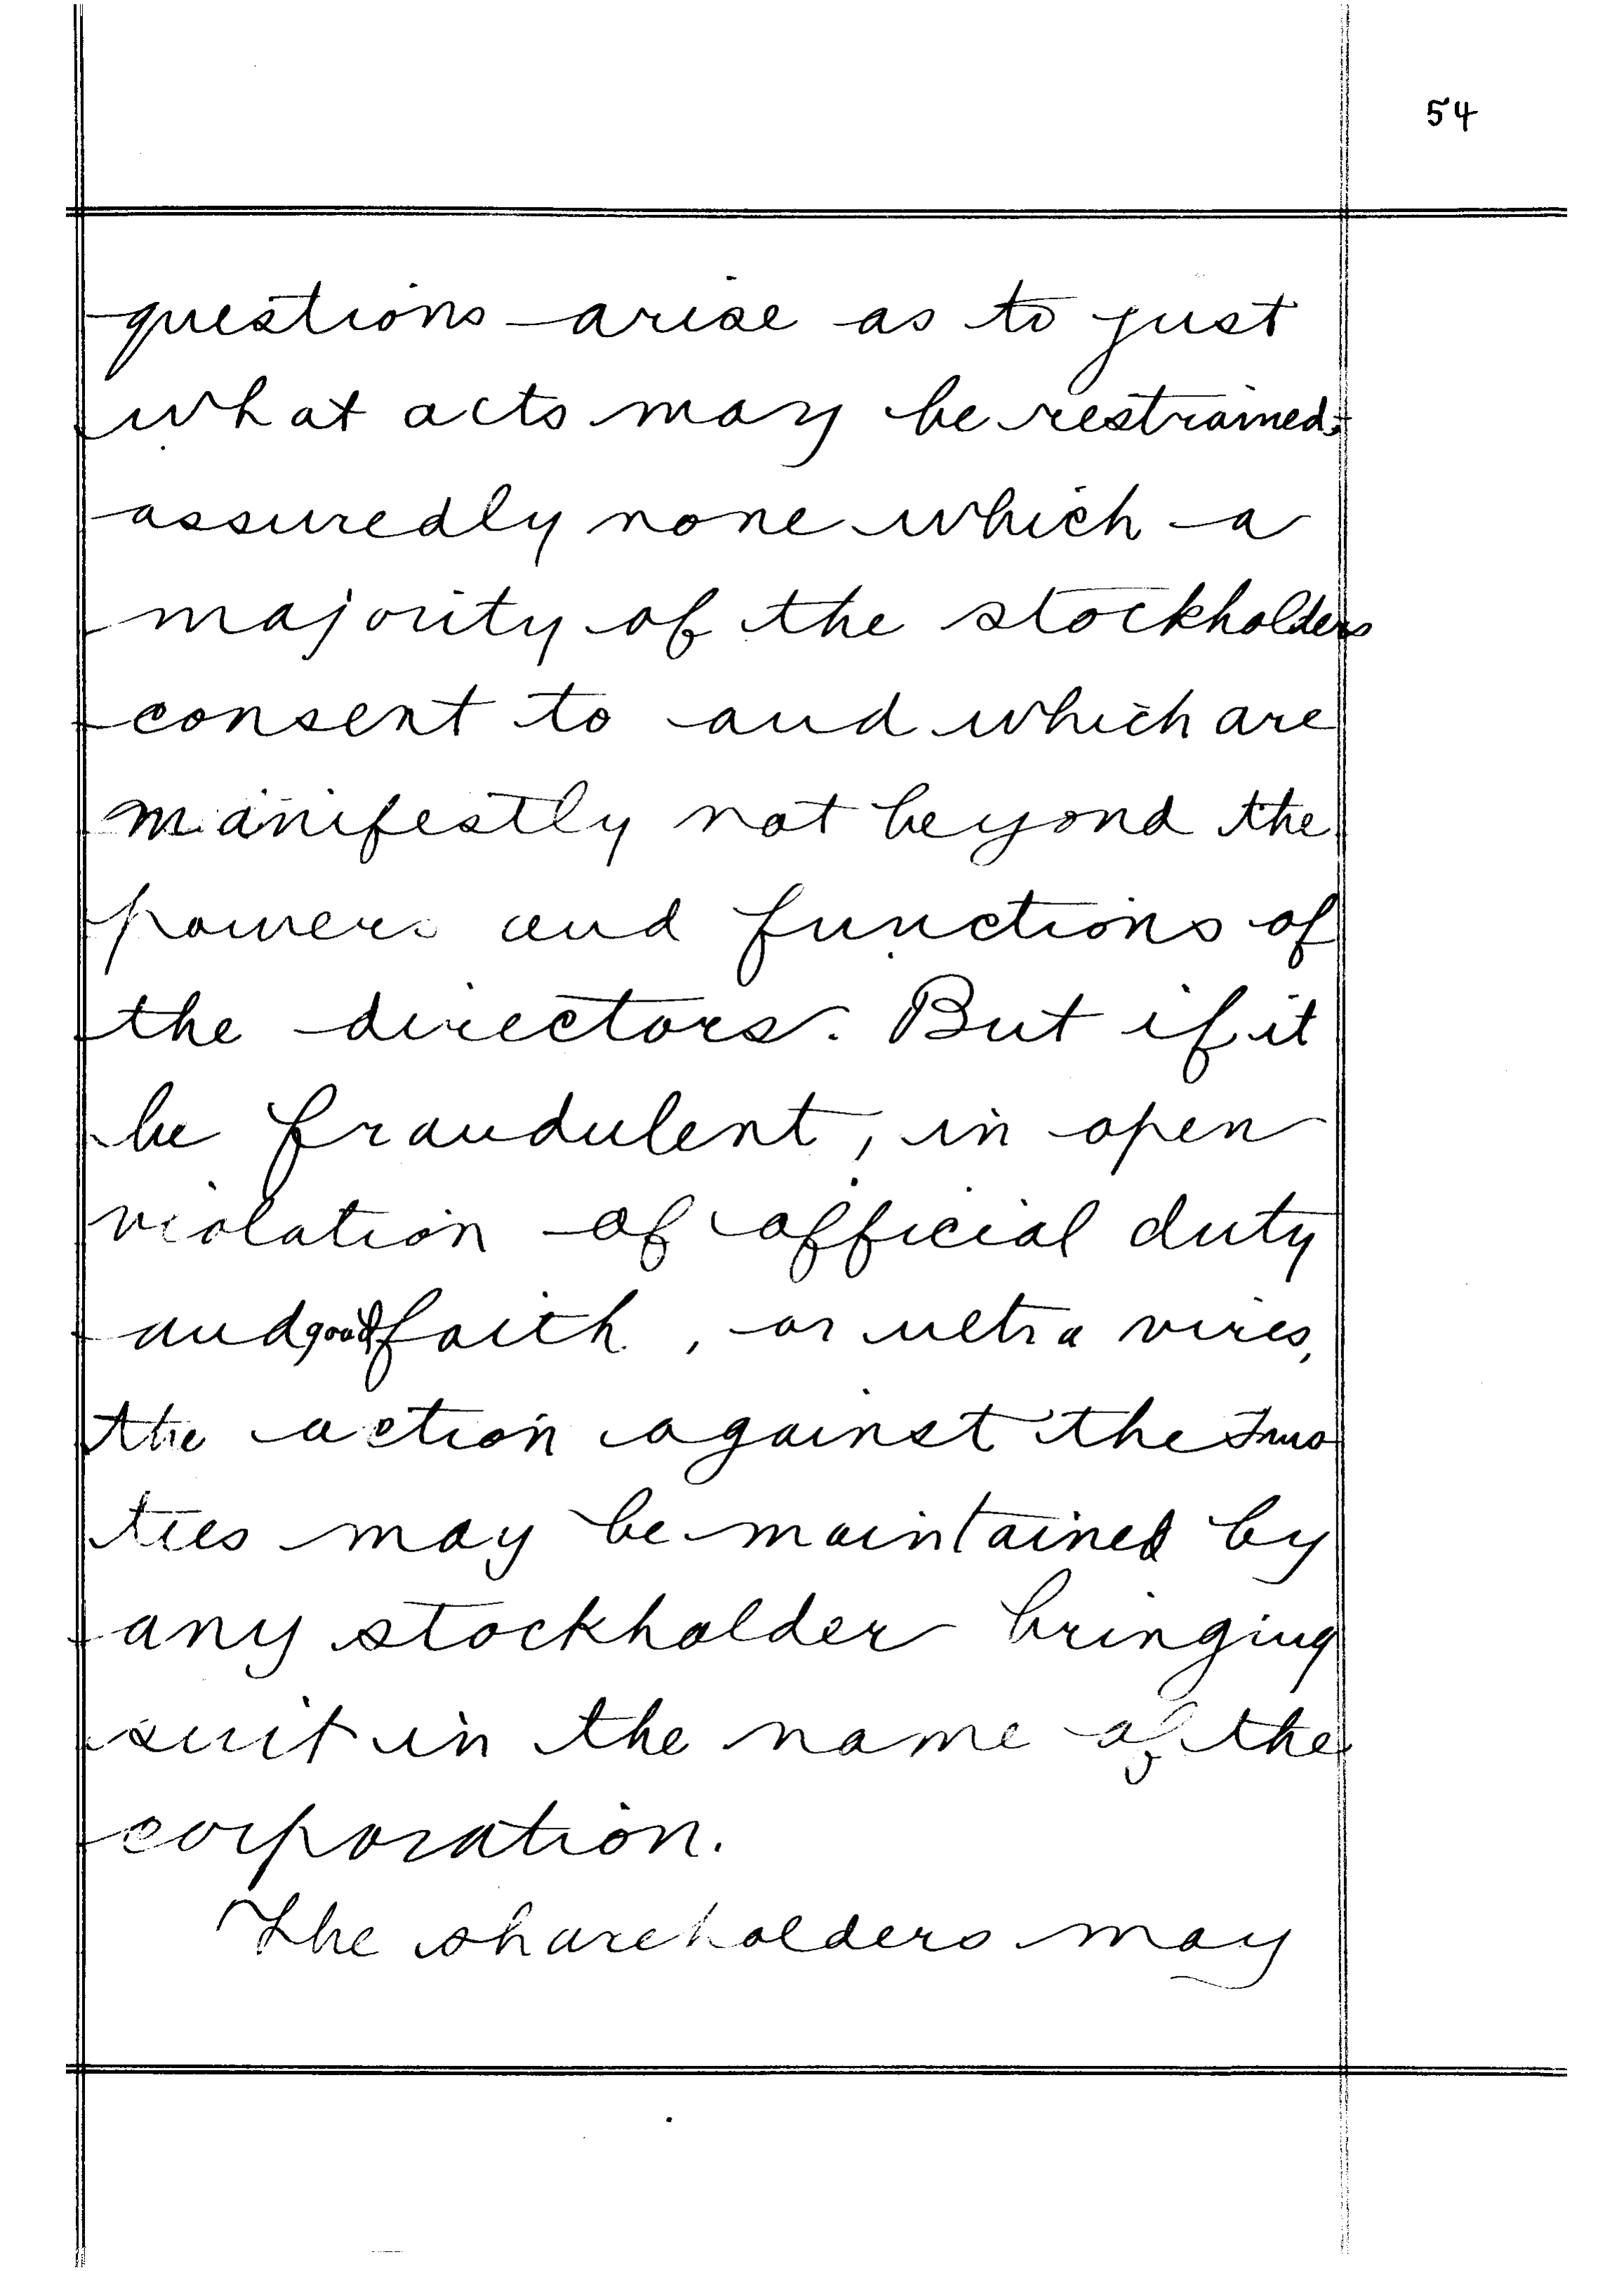 54
questions arise as to just
what acts may be restrained;
assuredly none which a
majority of the stockholders
consent to and which are
manifestly not beyond the
powers and functions of
the directors. But if it
be fraudulent, in open
violation of official duty
and good faith, or ultra vires,
the action against the Trus
tees may be maintained by
any stockholder bringing
suit in the name of the
corporation.
The shareholders may